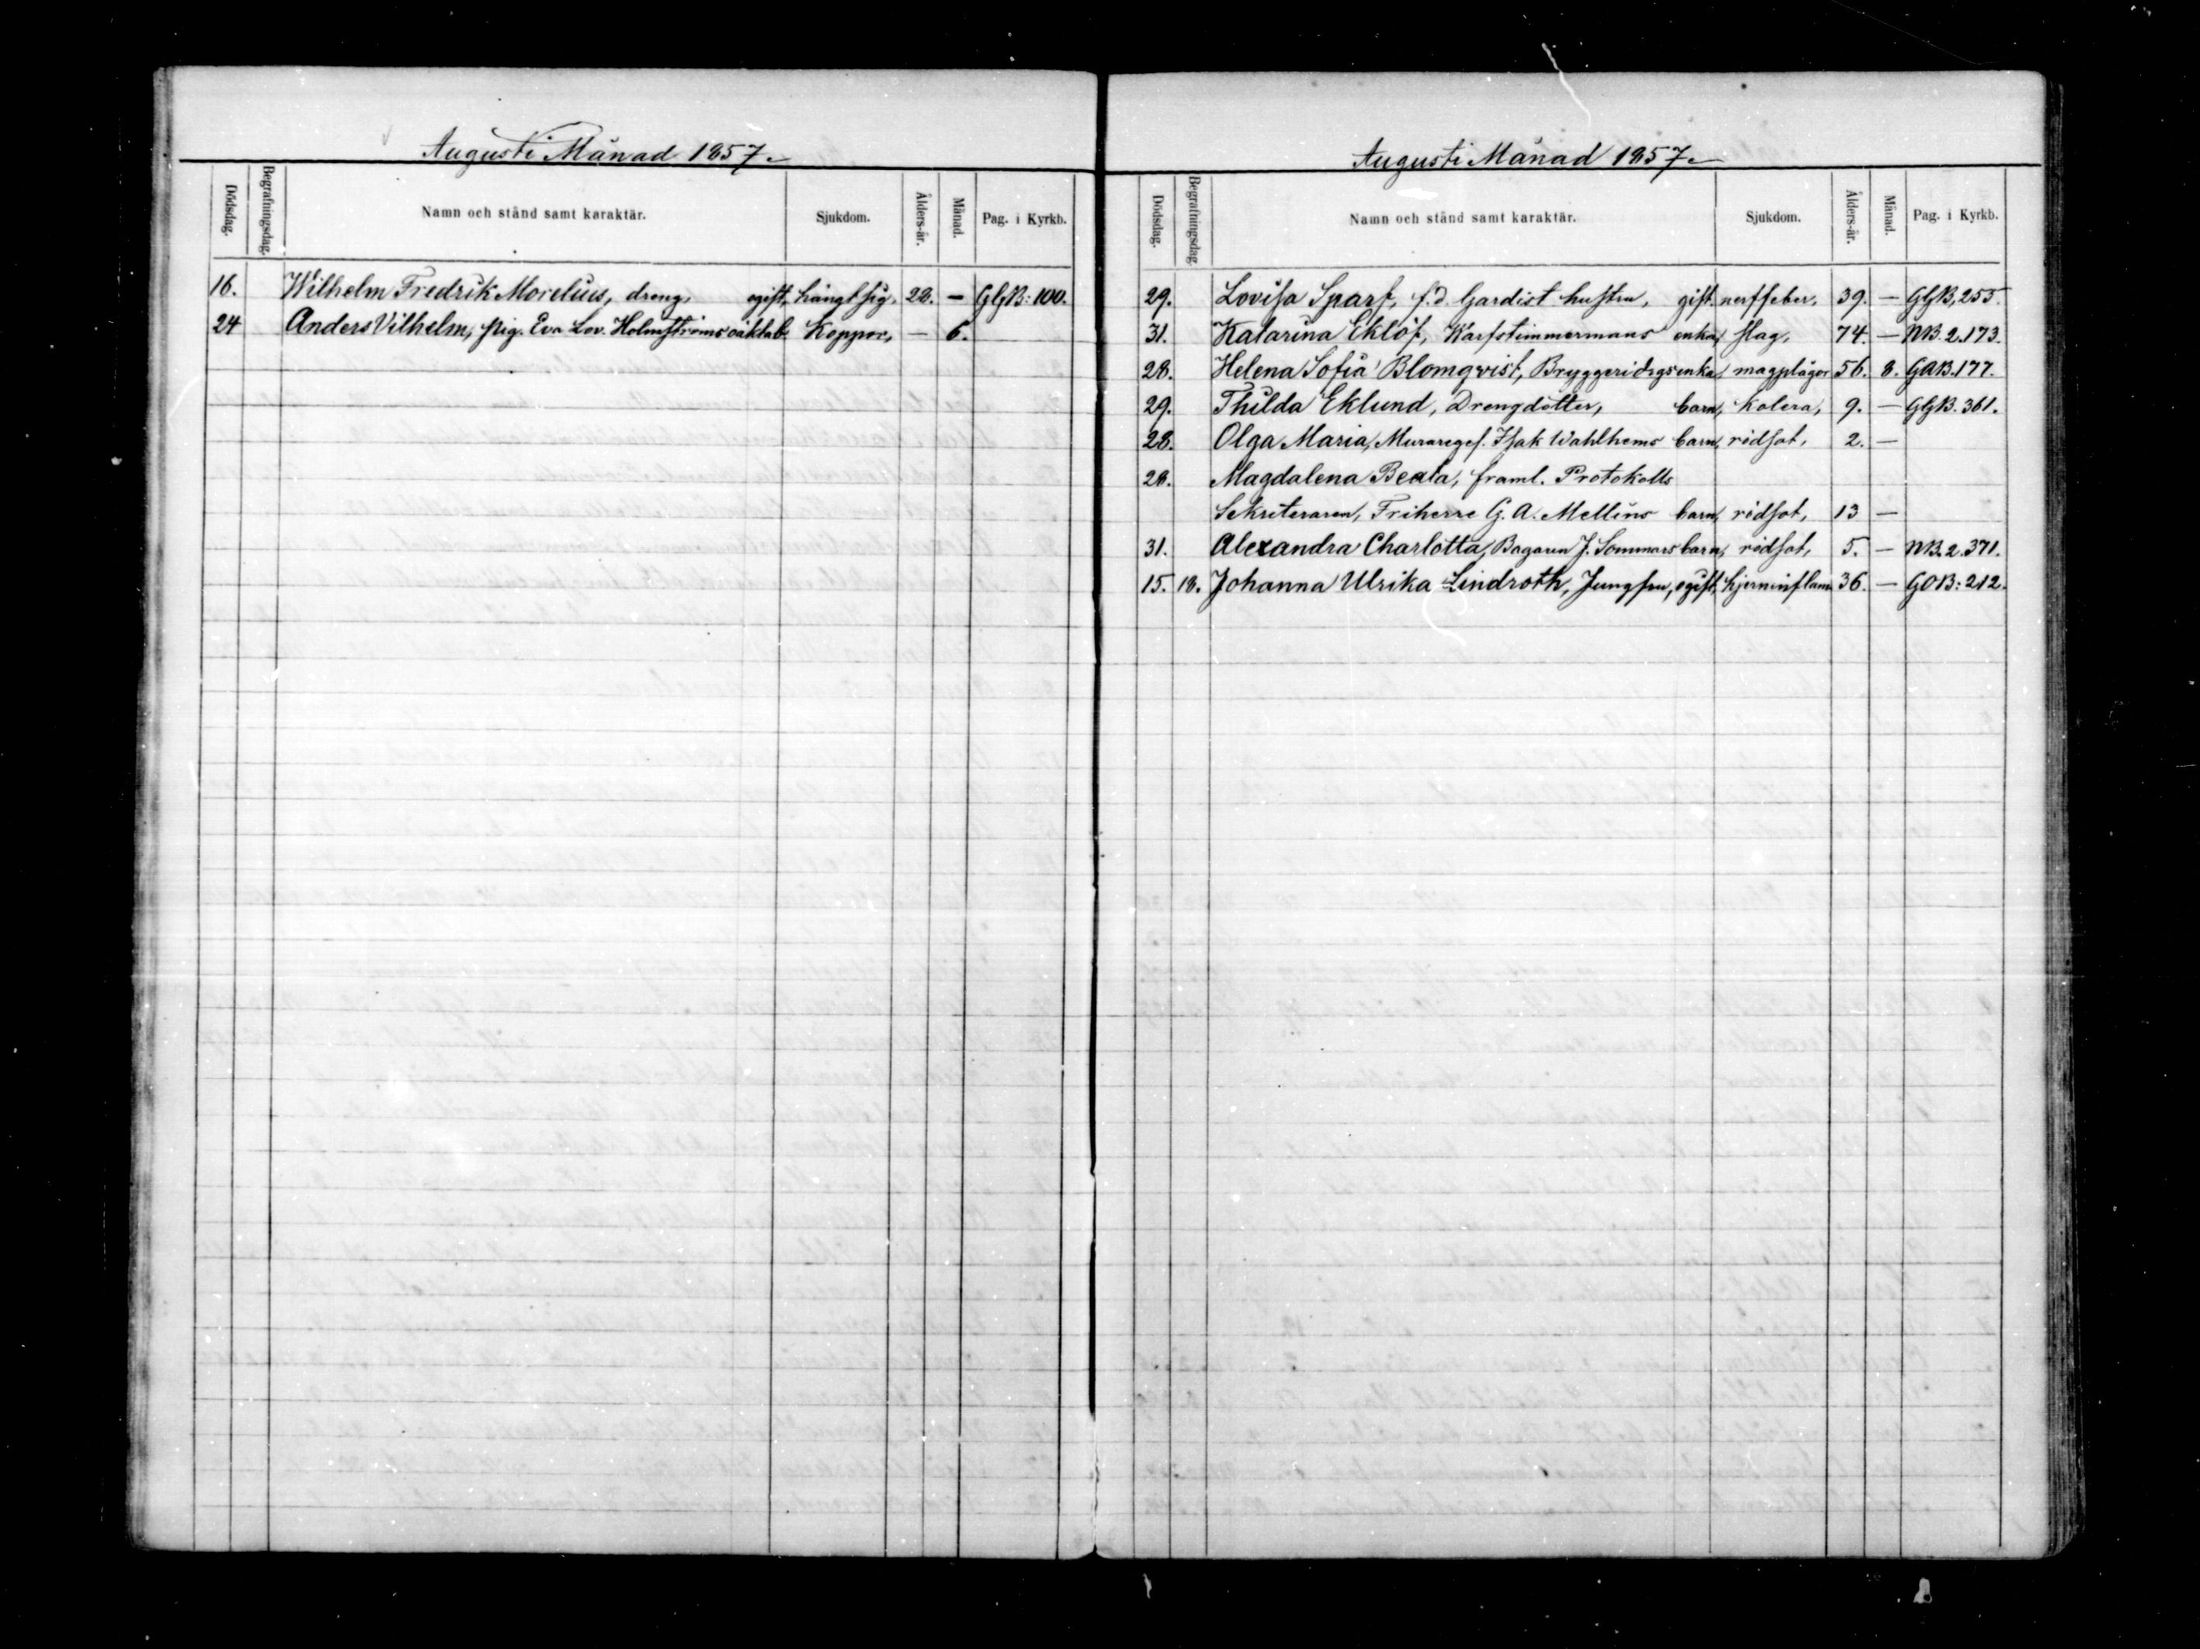 Augusti Månad 1857.
Dödsdag. Begrafningsdag. Namn och stånd samt karaktär. Sjukdom. Ålders-år. Månad. Pag. i Kyrkb.
16. Wilhelm Fredrik Morelius, dreng, ogift, hängt sig, 28. — GGB: 100.
24 Anders Vilhelm, pig. Eva Lov. Holmströms oäkta b. Koppor, — 6.
Augusti Månad 1857.
Dödsdag. Begrafningsdag. Namn och stånd samt karaktär. Sjukdom. Ålders-år. Månad. Pag. i Kyrkb.
29. Lovisa Sparf, f.d. Gardist hustru, gift. nerffeber, 39. — GGB, 255.
31. Katarina Eklöf, Karfstimmermans enka, slag, 74. — NB. 2. 173.
28. Helena Sofia Blomqvist, Bryggeridrgs enka, magplågor 56. 8. GAB. 177.
29. Thilda Eklund, Drengdotter, barn, kolera, 9. — GGB. 361.
28. Olga Maria, Muraregef. Isak Wahlhems barn, rödsot, 2. —
28. Magdalena Beata, framl. Protokolls
Sekriteraren, Friherre G. A. Mellins barn, rödsot, 13 —
31. Alexandra Charlotta, Bagaren J. Sommars barn, rödsot, 5. — NB. 2. 371.
15. 18. Johanna Ulrika Lindroth, Jungfru, ogift, hjerninflam 36. — GOB: 212.